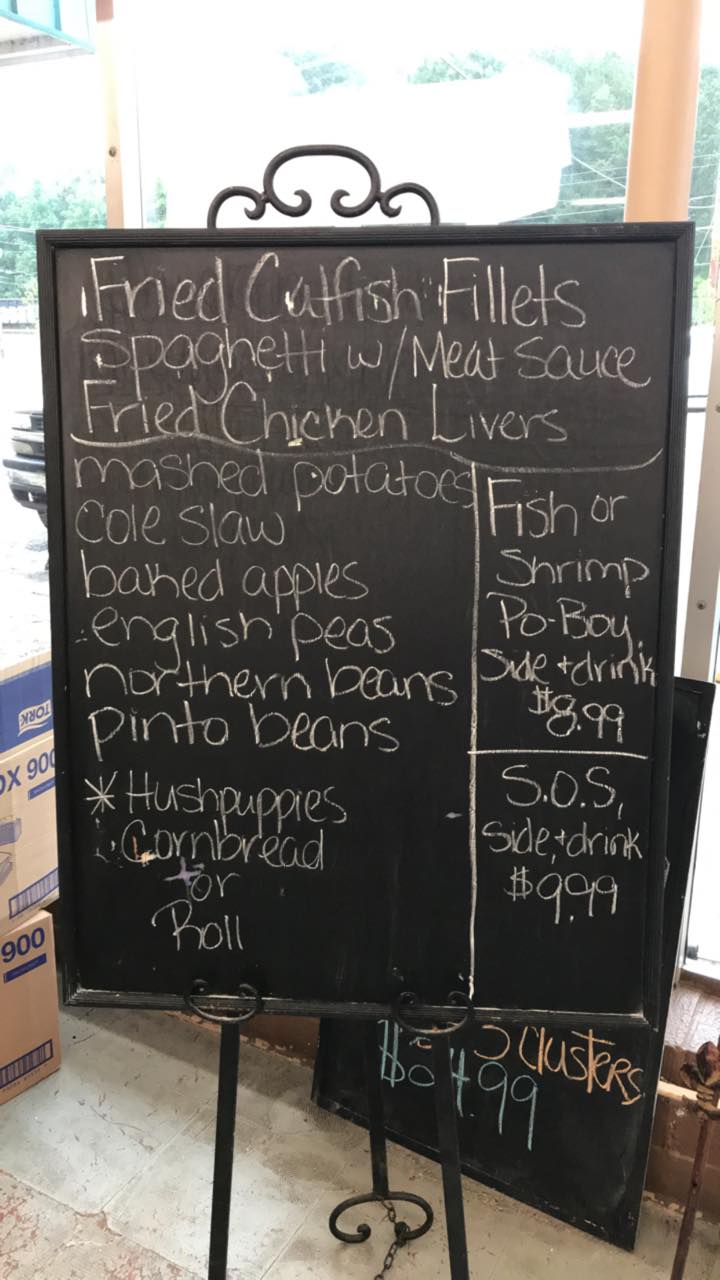 Fried Catfish Fillets
Spaghetti w/Meat Sauce
Fried Chicken Livers
mashed potatoes
cole slaw
baked apples
english peas
northern beans
pinto beans
* Hushpuppies
Cornbread
or
Roll
Fish or
Shrimp
Po-Boy
Side + drink
$8.99
S.O.S,
Side, + drink
$9.99
TORK
900
900
5 Clusters
4.99